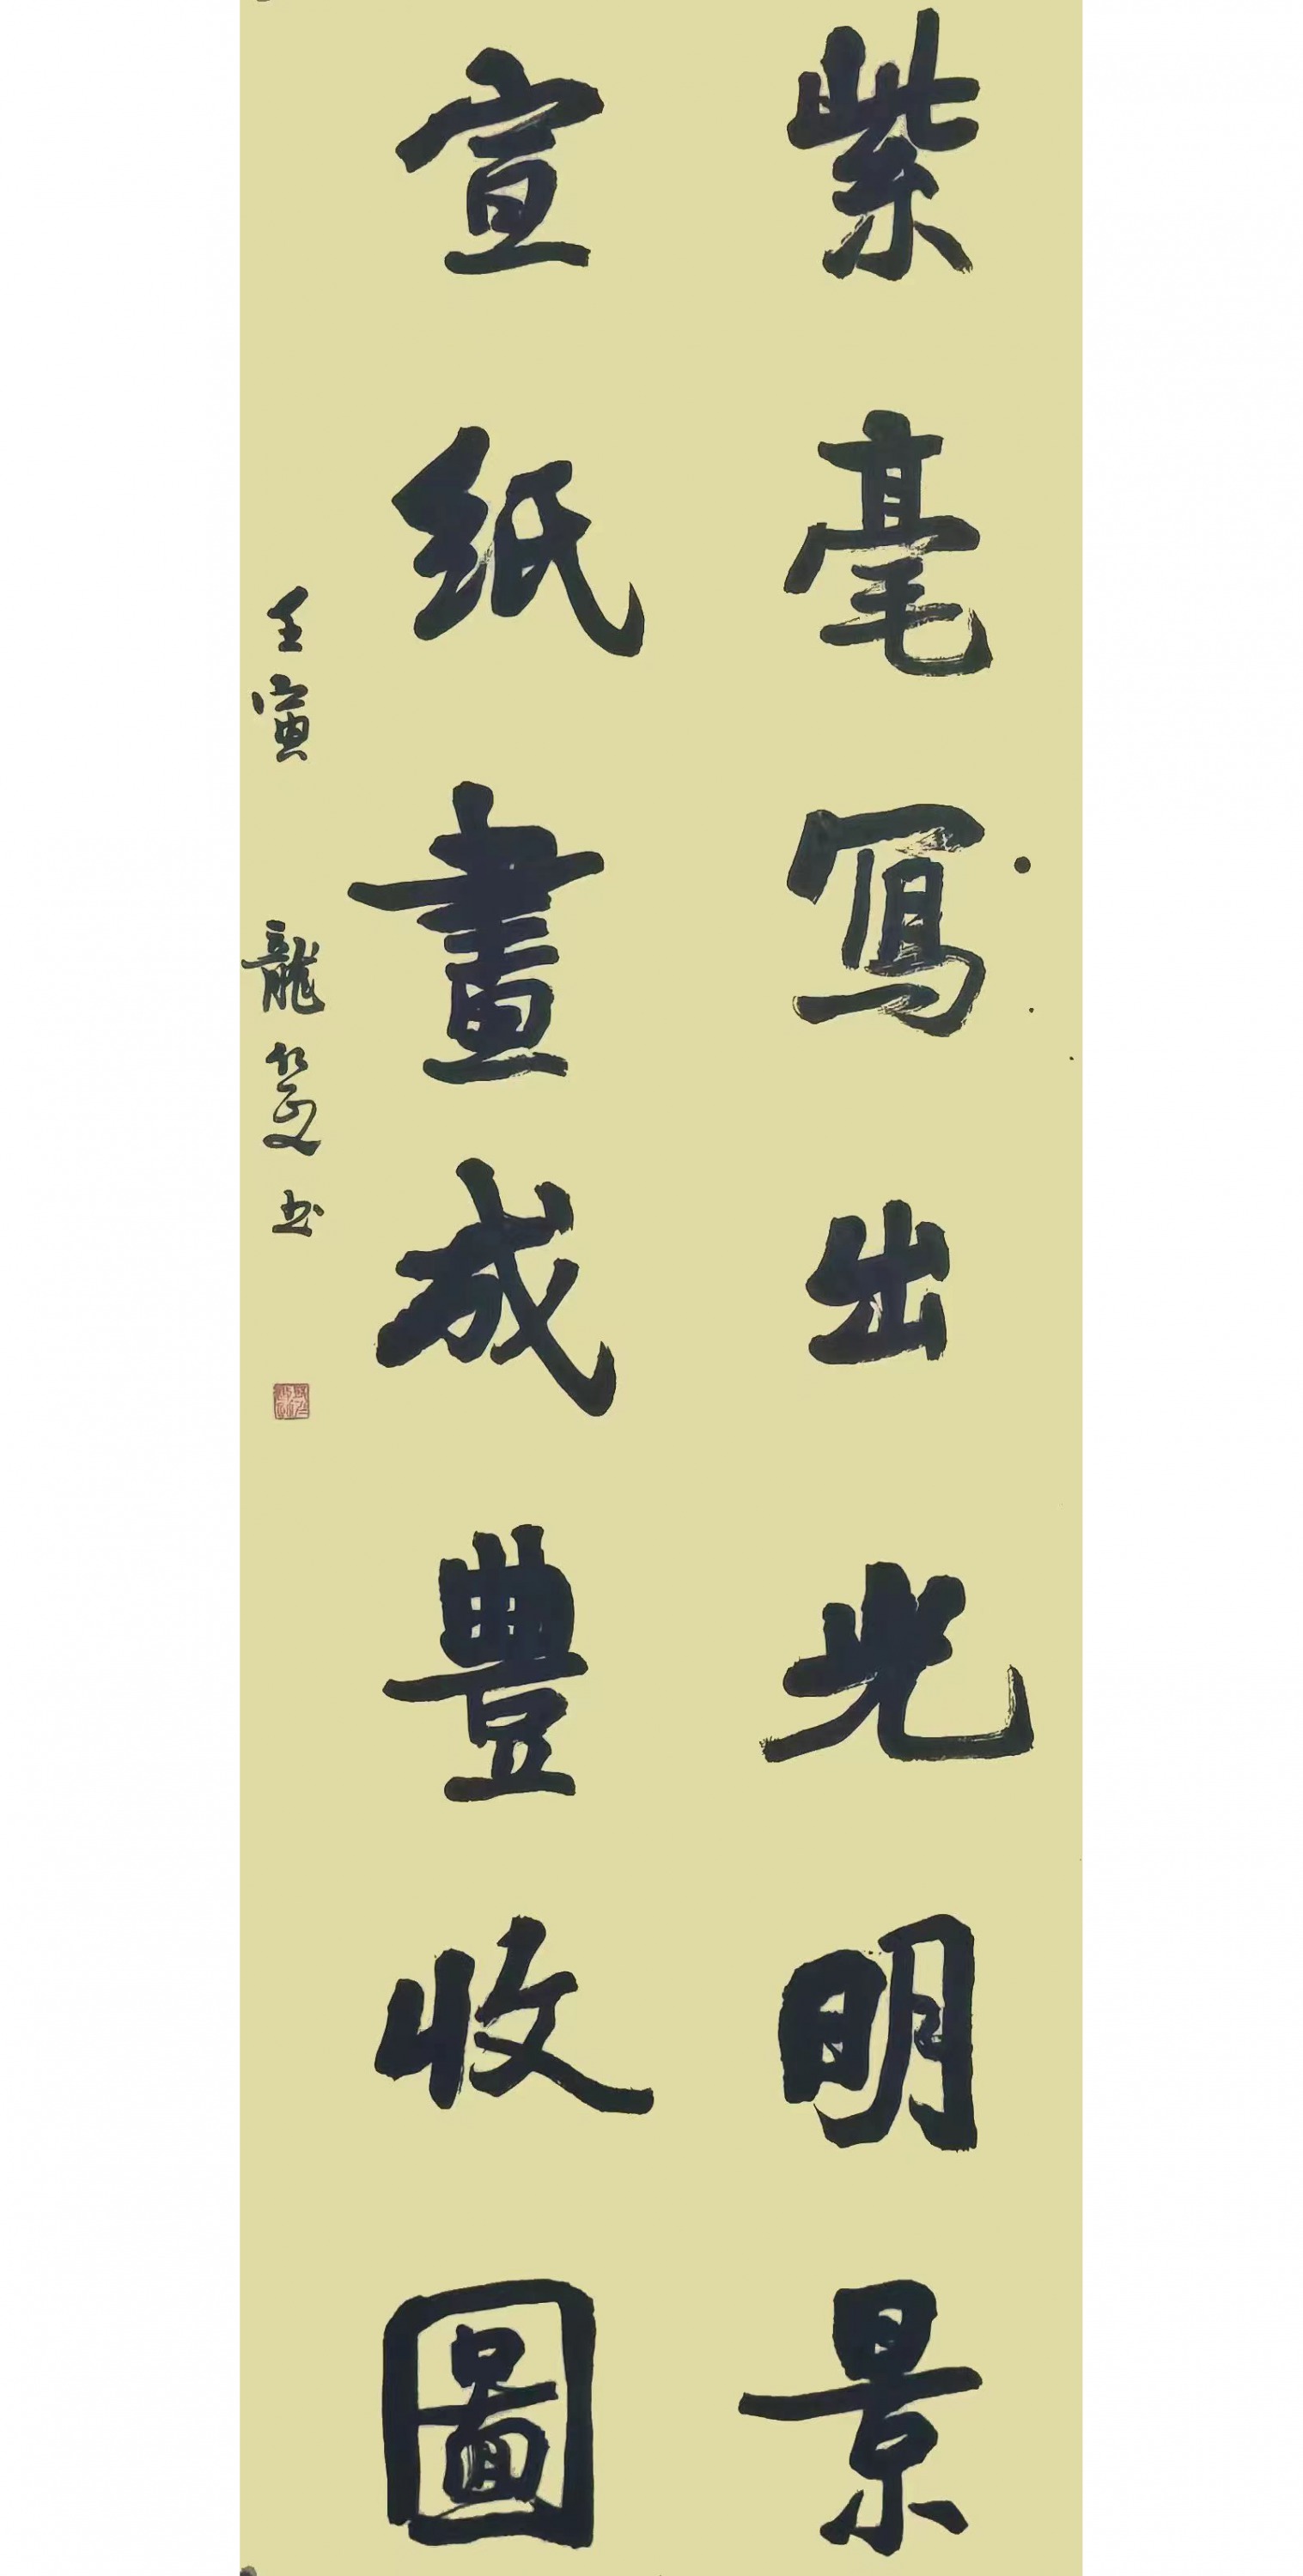 紫毫寫出光明景
宣纸畫成豐收圖
壬寅 龍 书